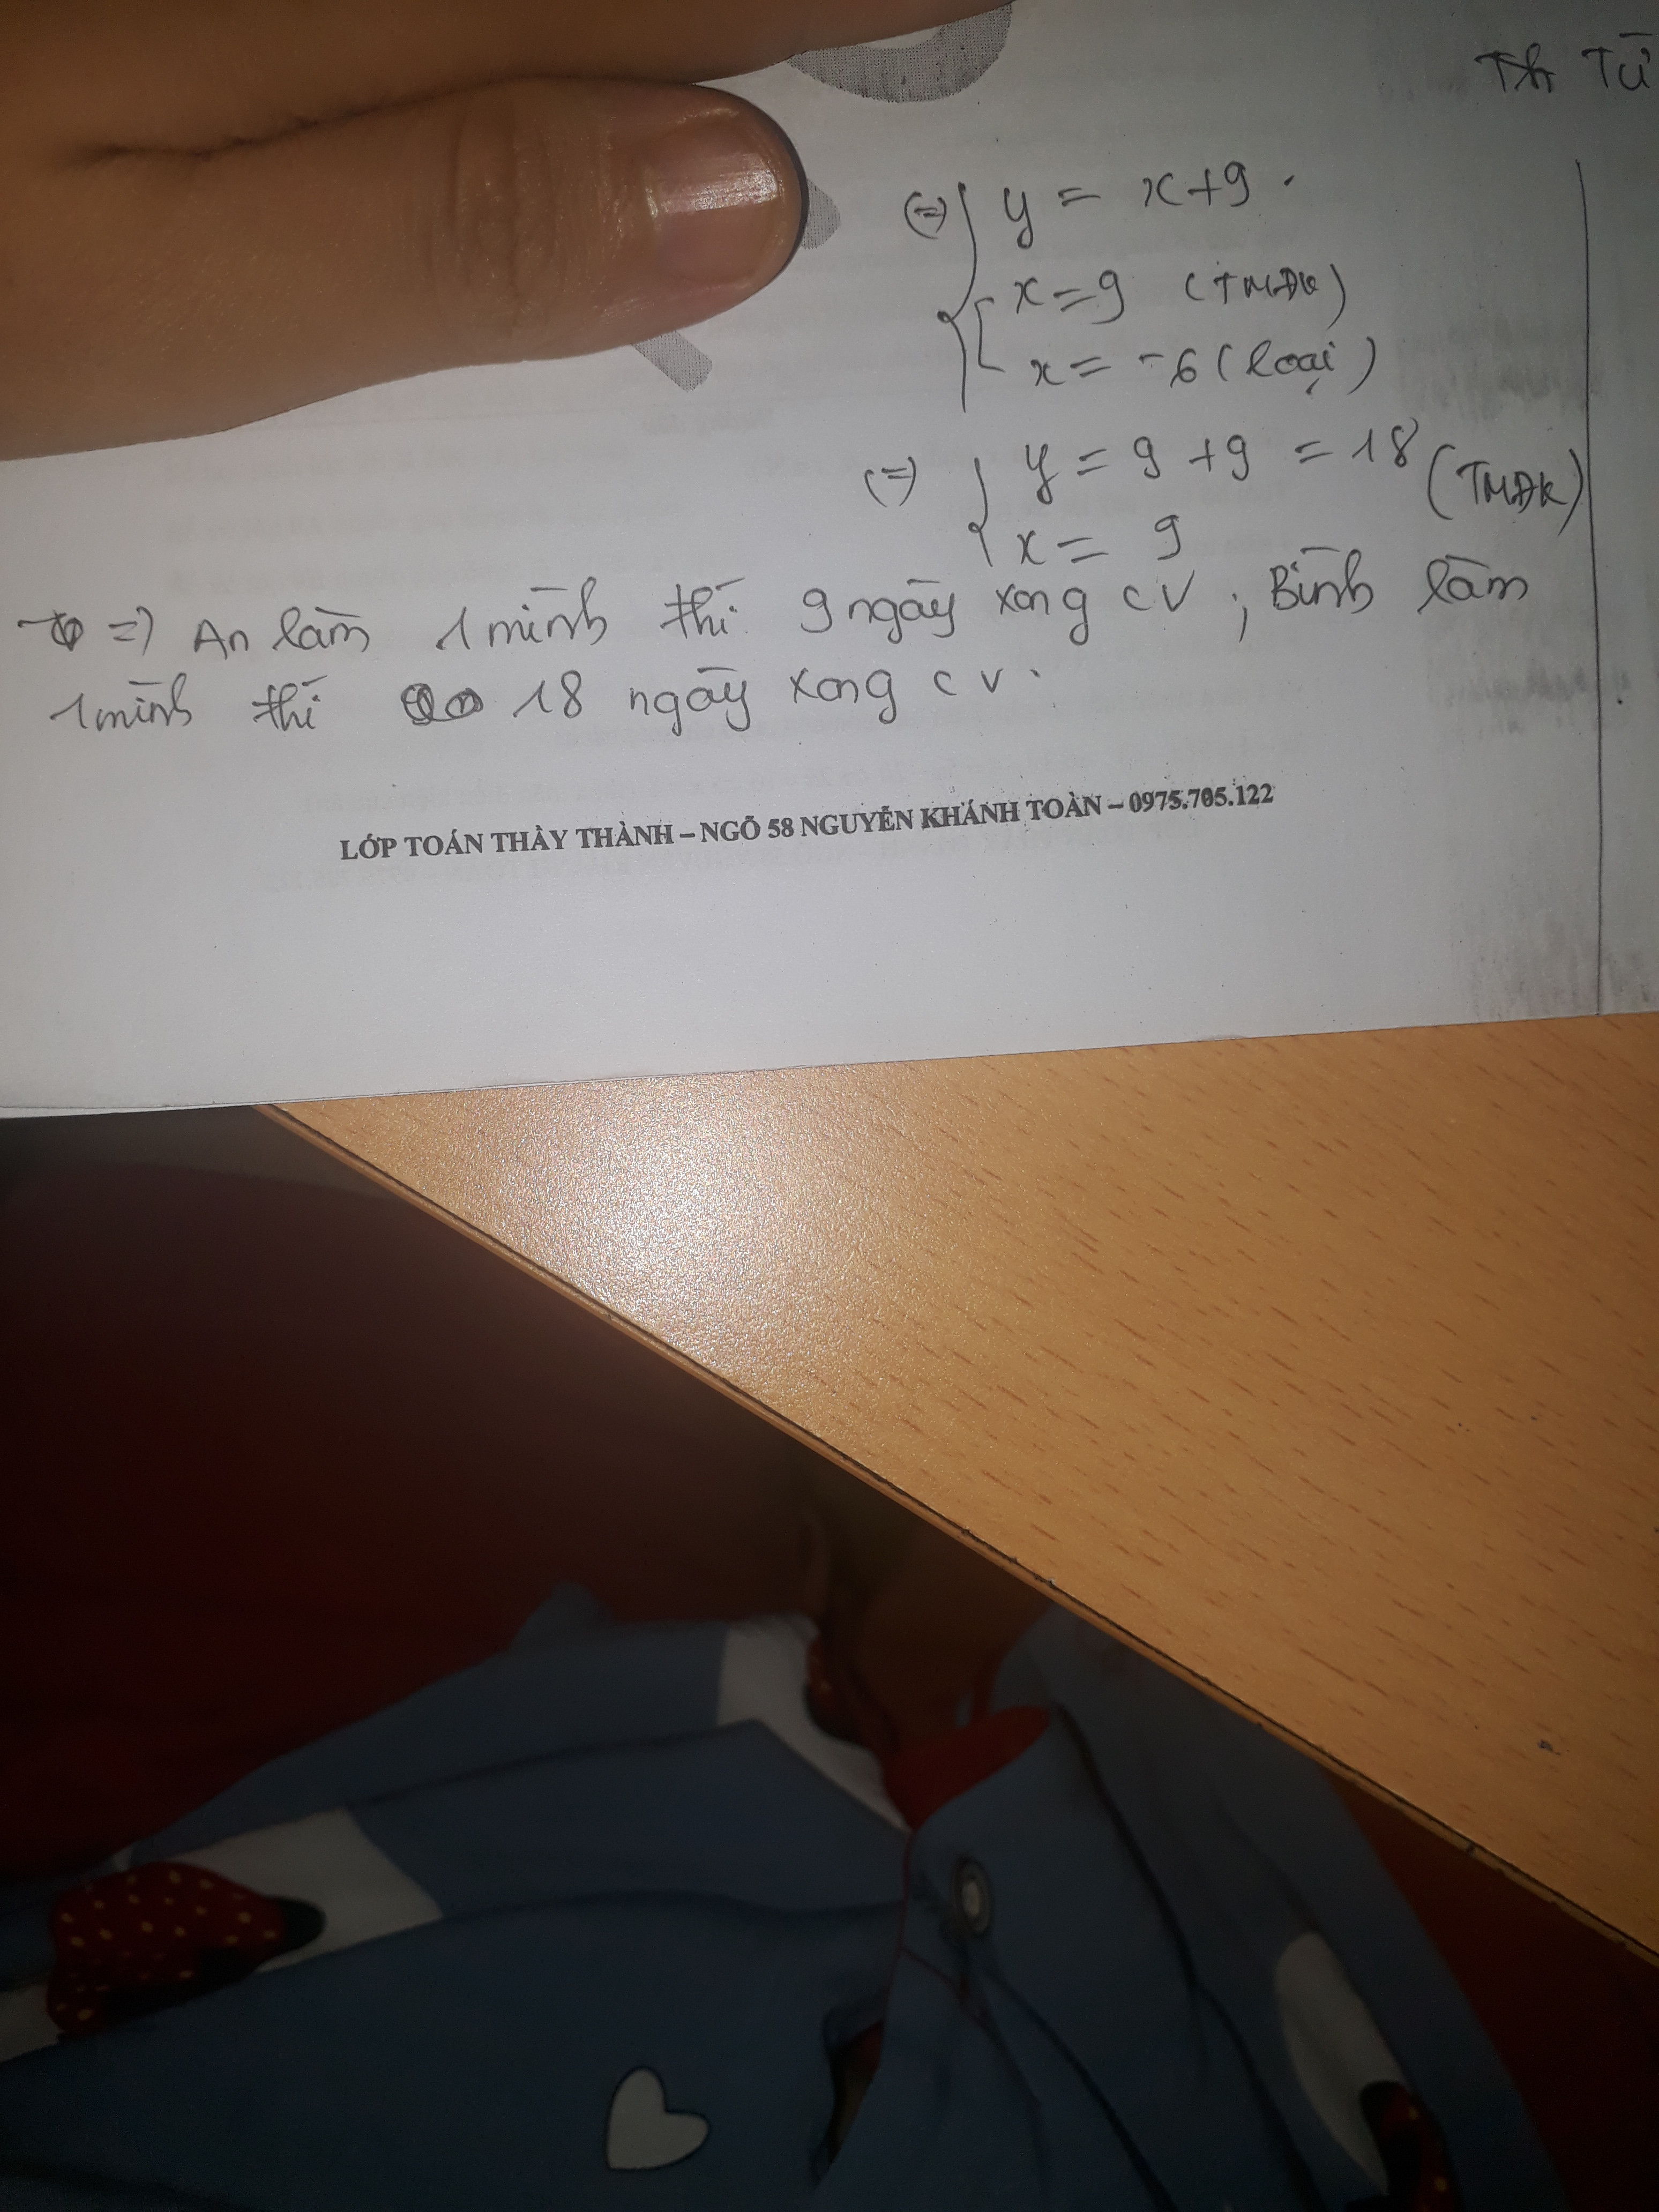 Th Từ
(=) { y = x+9.
[ x=9 (TMĐK)
x= -6 (loại)
(=) { y = 9 +9 = 18 (TMĐK)
x= 9
=) An làm 1 mình thì 9 ngày xong cv ; Bình làm
1 mình thì 18 ngày xong cv.
LỚP TOÁN THẦY THÀNH – NGÕ 58 NGUYỄN KHÁNH TOÀN – 0975.705.122